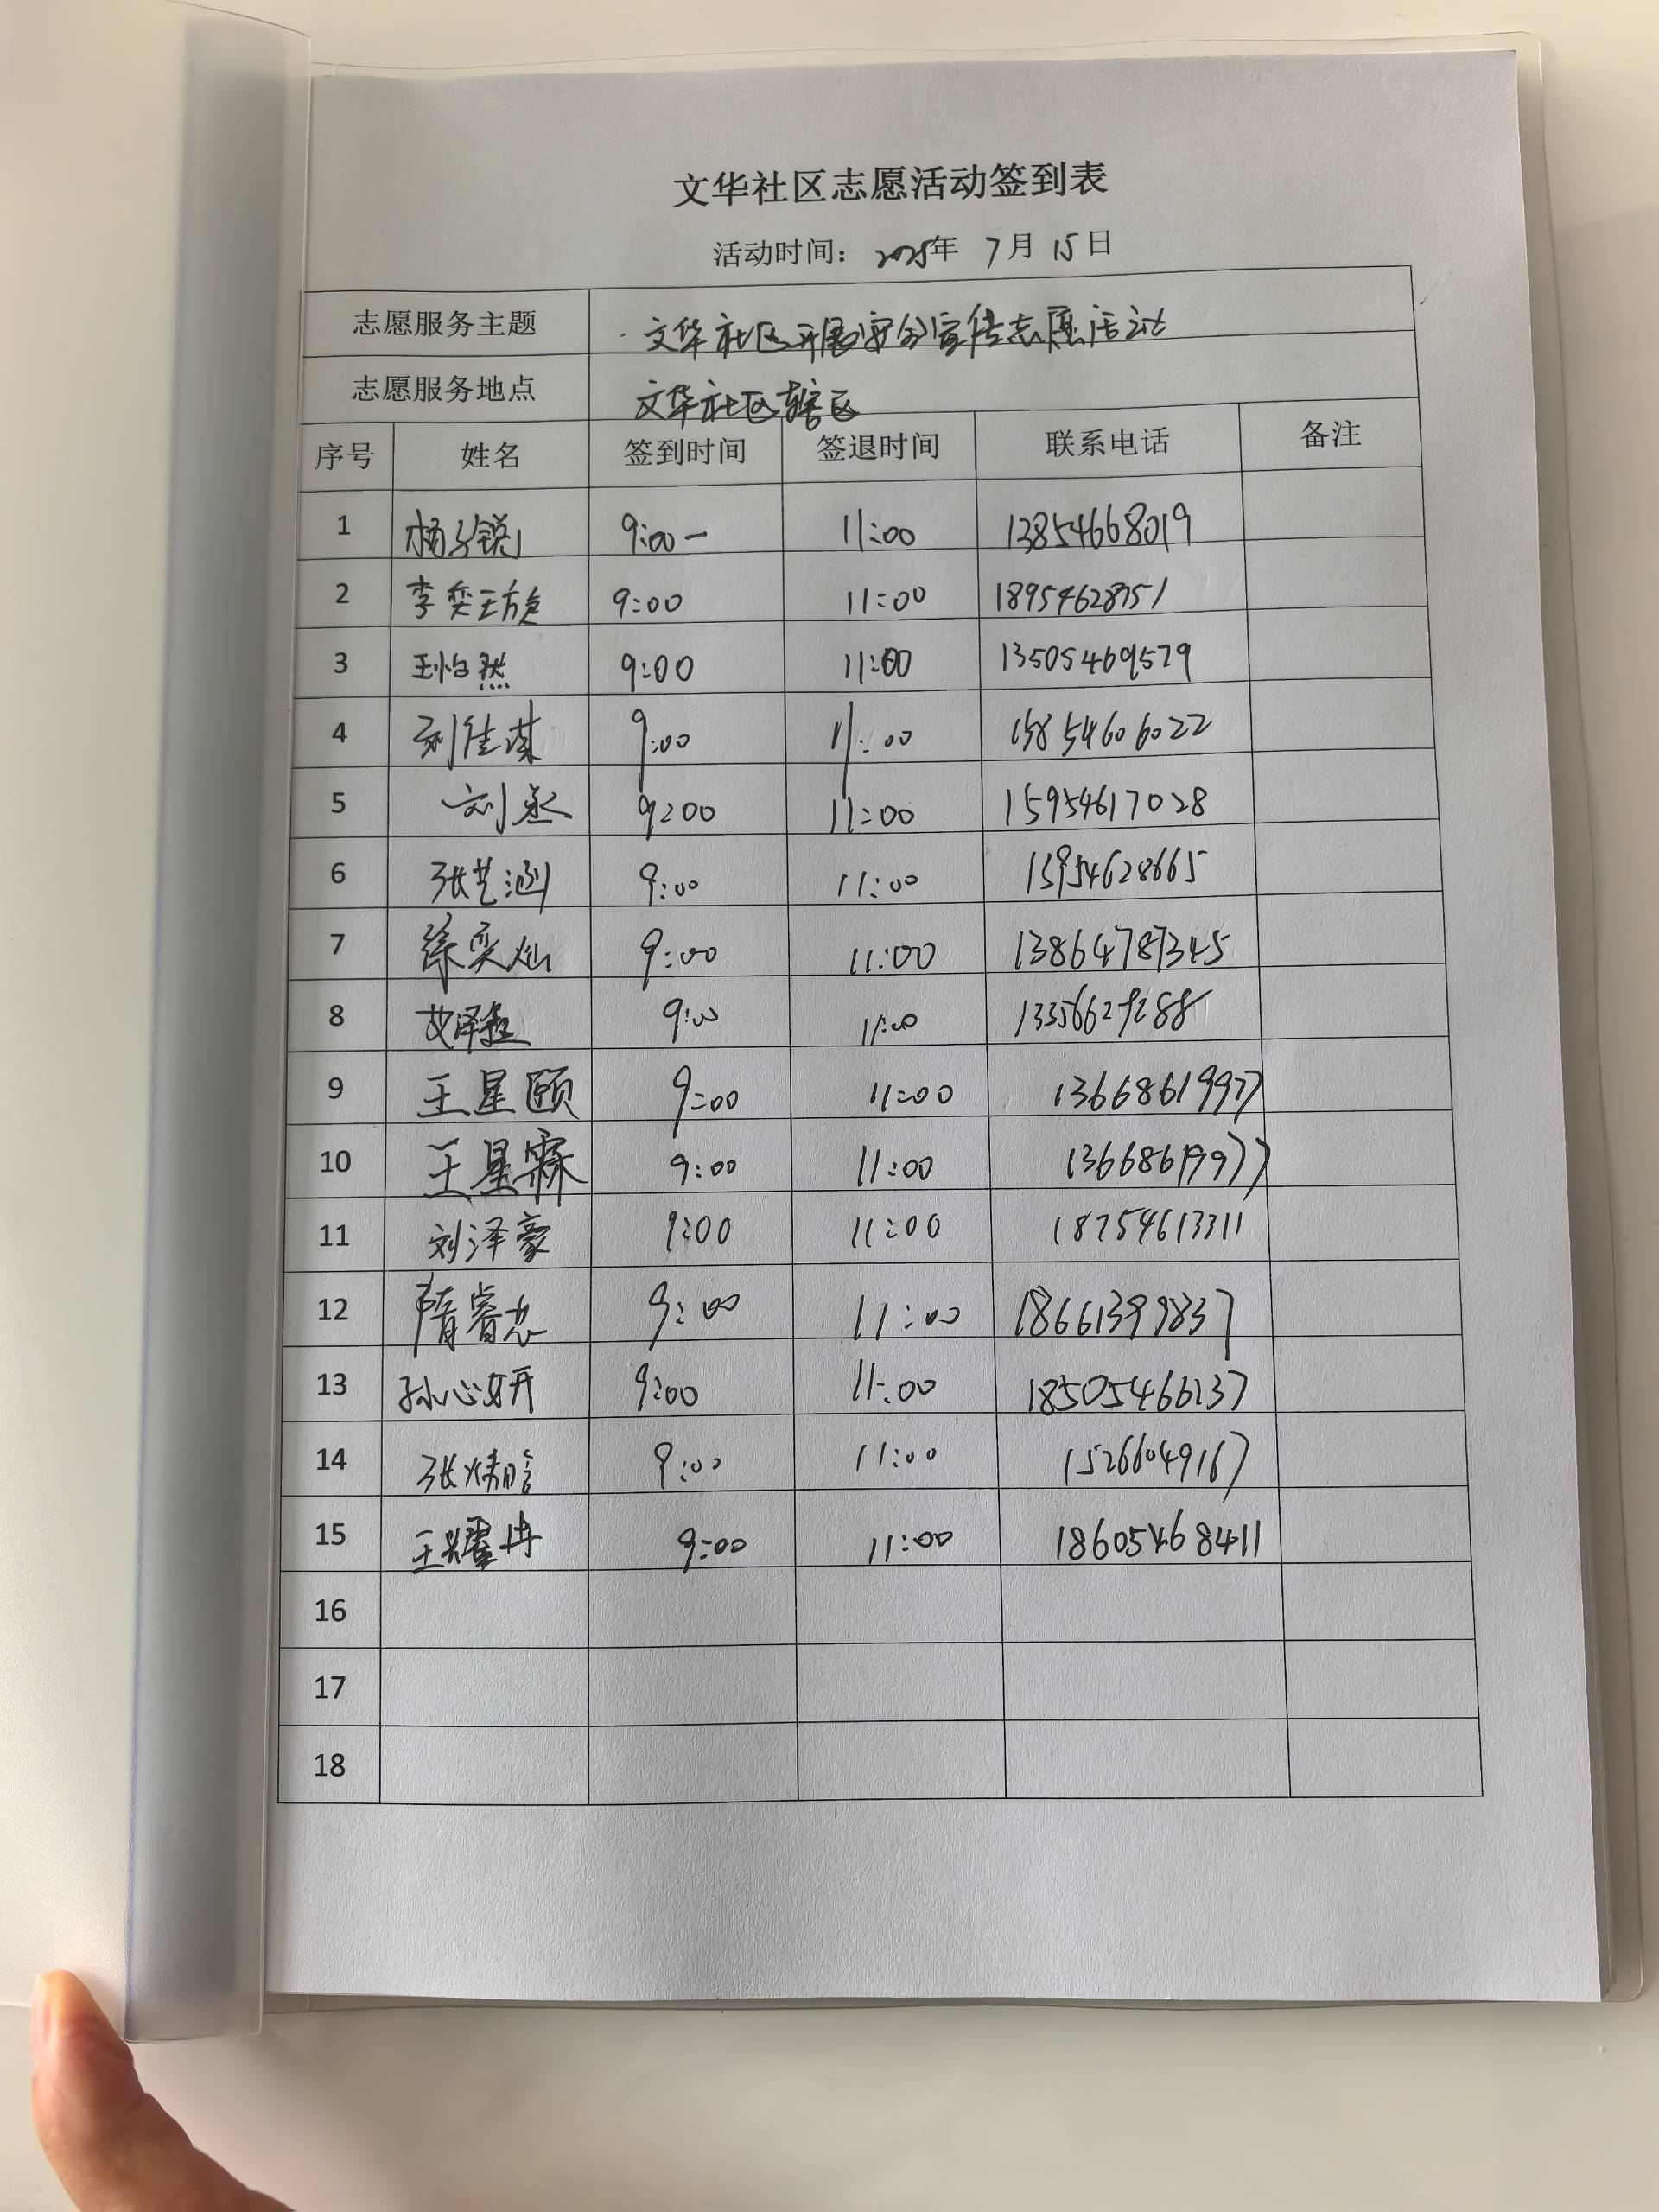 文华社区志愿活动签到表
活动时间：2025年 7月 15日
志愿服务主题 文华社区开展安全宣传志愿活动
志愿服务地点 文华社区辖区
序号 姓名 签到时间 签退时间 联系电话 备注
1 杨子锐 9:00- 11:00 13854668019
2 李奕璇 9:00 11:00
3 王怡然 9:00 11:00 13505469579
4 刘佳琪 9:00 11:00
5 刘丞 9:00 11:00 15954617028
6 张艺涵 9:00 11:00
7 徐奕灿 9:00 11:00 13864787345
8 9:00 11:00
9 王星颐 9:00 11:00 13668619977
10 王星霖 9:00 11:00 13668619977
11 刘泽豪 9:00 11:00 18754613311
12 隋睿 9:00 11:00 18661399837
13 孙心妍 9:00 11:00 18505466137
14 张 9:00 11:00 15266049167
15 王耀冉 9:00 11:00 18605468411
16
17
18